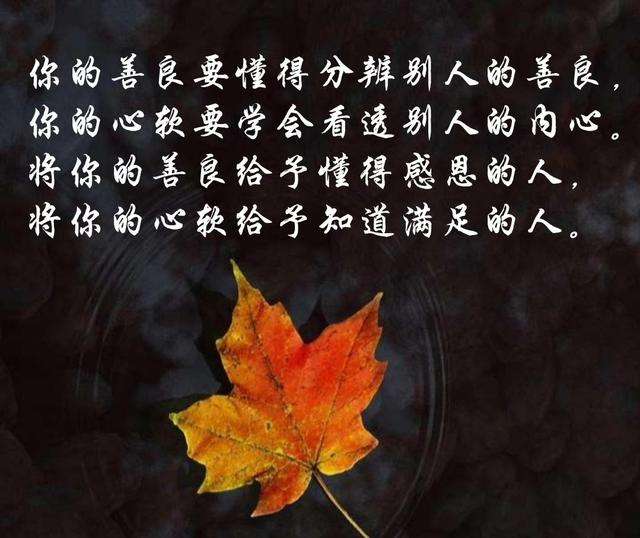 你的善良要懂得分辨别人的善良，
你的心软要学会看透别人的内心。
将你的善良给予懂得感恩的人，
将你的心软给予知道满足的人。